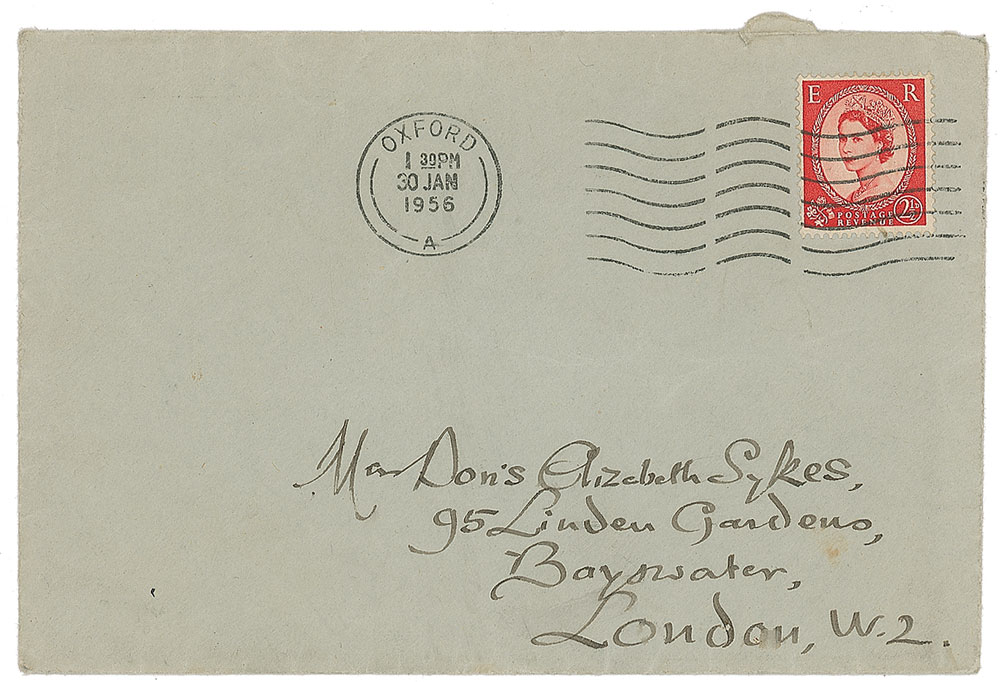 E R
OXFORD
1 30PM
30 JAN
1956
A
POSTAGE 2½
REVENUE
Mrs Doris Elizabeth Sykes,
95 Linden Gardens,
Bayswater,
London, W.2.